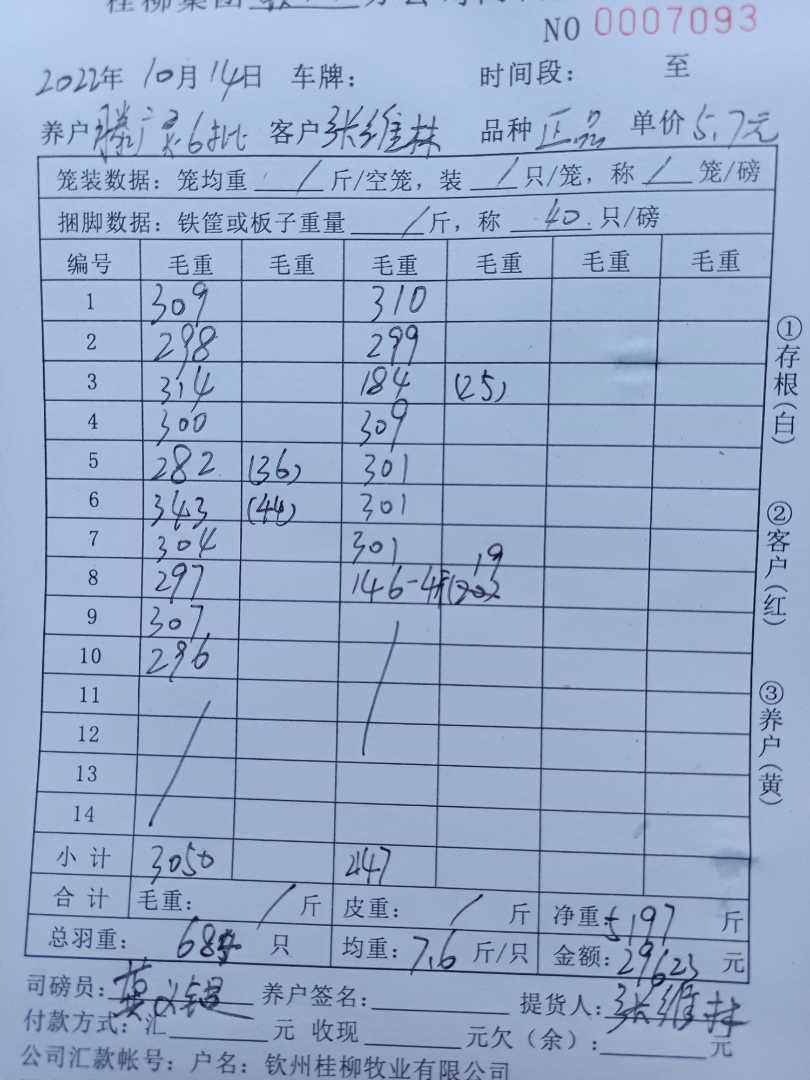 桂柳集团
NO 0007093
2022年 10月 14日 车牌： 时间段： 至
养户 滕广灵6批 客户 张维林 品种 正品 单价 5.7元
笼装数据：笼均重 / 斤/空笼，装 / 只/笼，称 / 笼/磅
捆脚数据：铁筐或板子重量 / 斤，称 40 只/磅
编号 毛重 毛重 毛重 毛重 毛重 毛重
1 309 310
2 298 299
3 314 184 (25)
4 300 309
5 282 (36) 301
6 343 (44) 301
7 304 301
8 297 146-4 19
9 307
10 296
11
12
13
14
小计 3050 2147
合计 毛重： / 斤 皮重： / 斤 净重：5197 斤
总羽重： 684 只 均重：7.6 斤/只 金额：29623 元
司磅员： 养户签名： 提货人：张维林
付款方式：汇 元 收现 元欠（余）： 元
公司汇款帐号：户名：钦州桂柳牧业有限公司
①存根（白）
②客户（红）
③养户（黄）